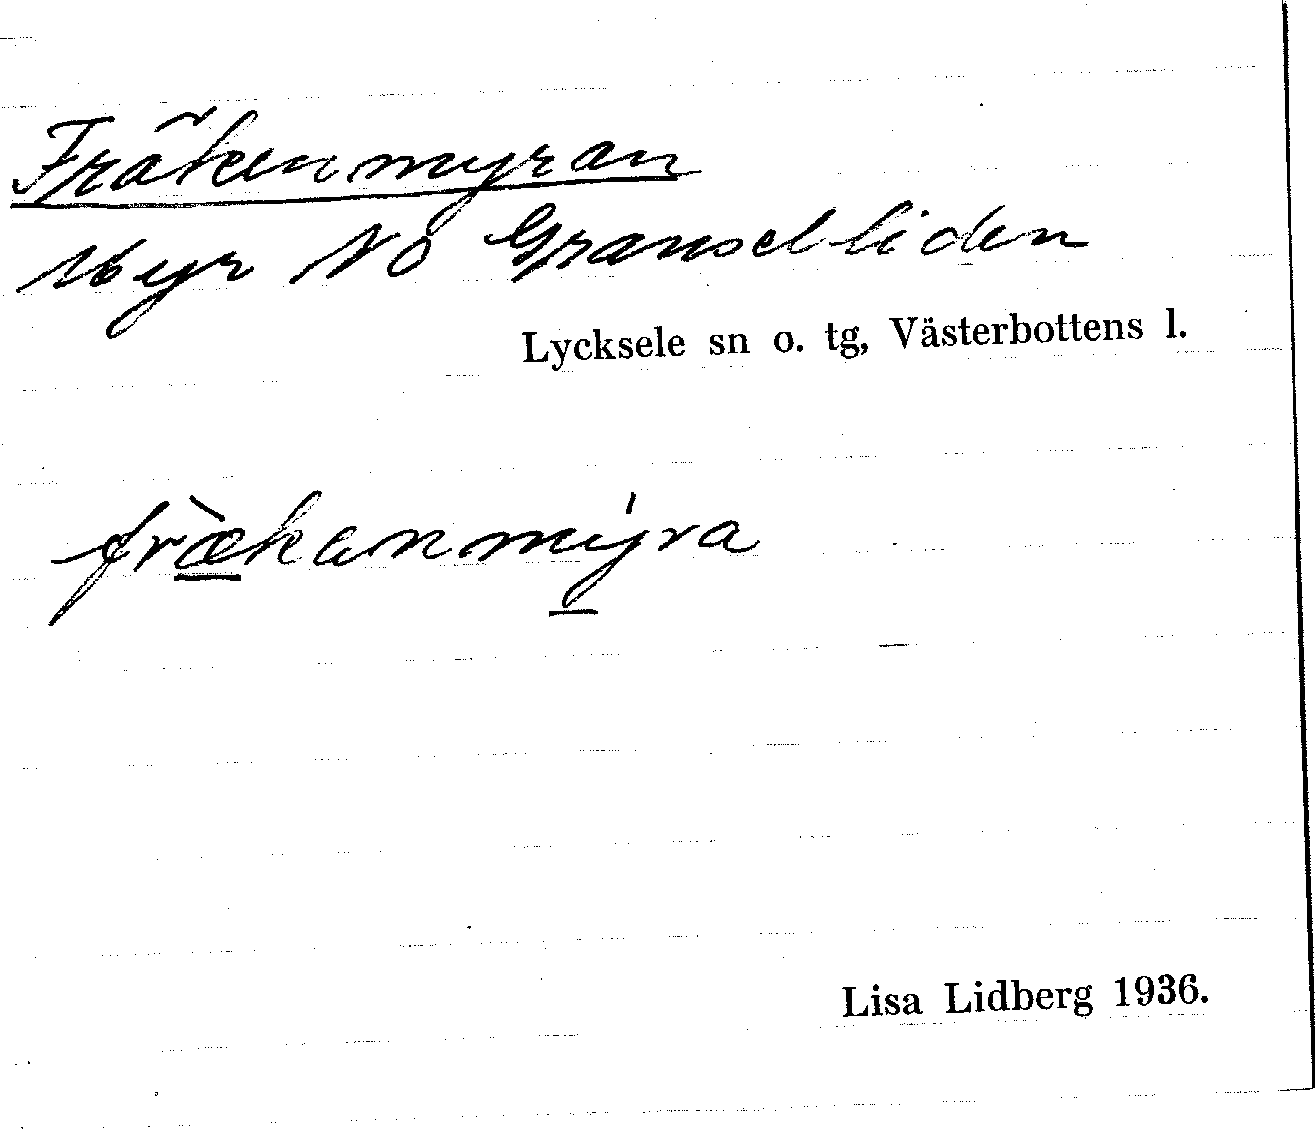 Fräkenmyran
Myr NO Granselliden
Lycksele sn o. tg, Västerbottens l.
fræ̀kanmýra
Lisa Lidberg 1936.